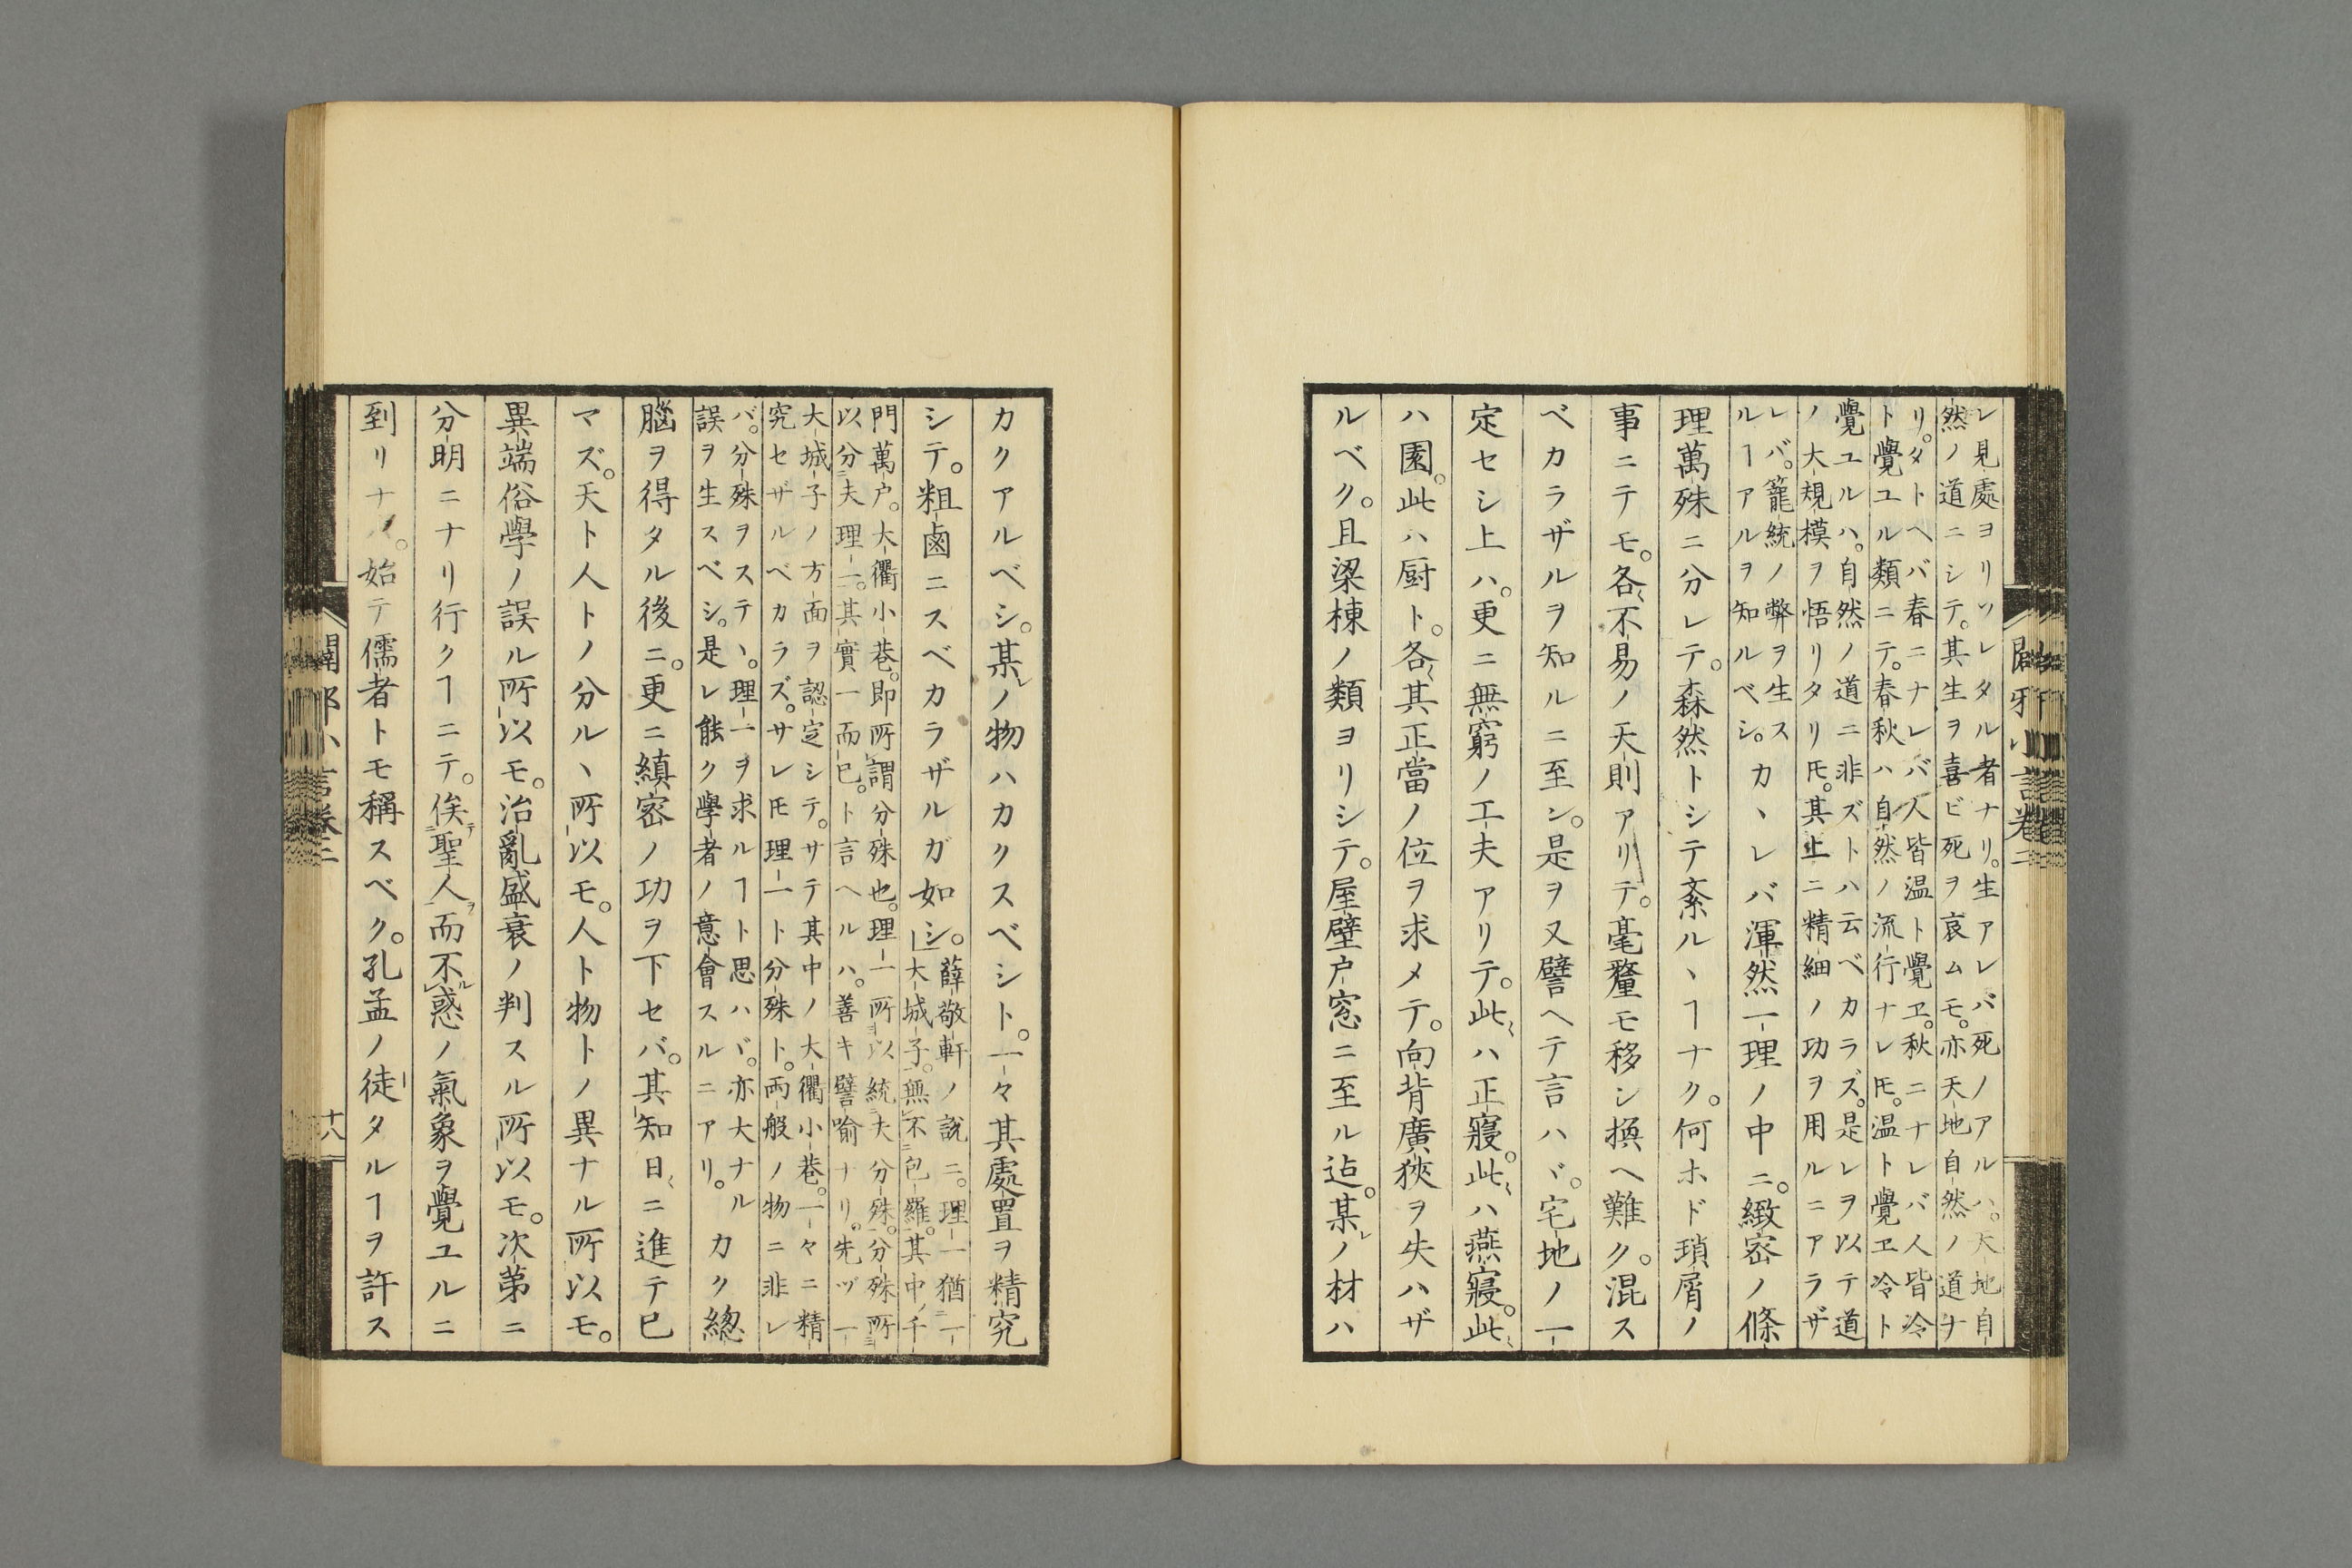 レ見處ヨリツレタル者ナリ。生アレバ死ノアルハ。天地自
然ノ道ニシテ。其生ヲ喜ビ死ヲ哀ムモ。亦天地自然ノ道ナ
リ。タトヘバ春ニナレバ人皆温ト覺ヱ。秋ニナレバ人皆冷
ト覺ユル類ニテ。春秋ハ自然ノ流行ナレ𪜈。温ト覺ヱ冷ト
覺ユルハ。自然ノ道ニ非ズトハ云ベカラズ。是レヲ以テ道
ノ大規模ヲ悟リタリ𪜈。其上ニ精細ノ功ヲ用ルニアラザ
レバ。籠統ノ弊ヲ生ス
ルヿアルヲ知ルベシ。
カヽレバ渾然一理ノ中ニ。緻密ノ條
理萬殊ニ分レテ。森然トシテ紊ルヽヿナク。何ホド瑣屑ノ
事ニテモ。各〻不易ノ天則アリテ。毫釐モ移シ換ヘ難ク。混ス
ベカラザルヲ知ルニ至ン。是ヲ又譬ヘテ言ハヾ。宅地ノ一
定セシ上ハ。更ニ無窮ノ工夫アリテ。此〻ハ正寢。此〻ハ燕寢。此〻
ハ園。此ハ厨ト。各〻其正當ノ位ヲ求メテ。向背廣狹ヲ失ハザ
ルベク。且梁棟ノ類ヨリシテ。屋壁戸窓ニ至ル迠。某レノ材ハ
闢邪小言卷二
カクアルベシ。某レノ物ハカクスベシト。一々其處置ヲ精究
シテ。粗鹵ニスベカラザルガ如シ。
薛敬軒ノ説ニ。理一猶一
大城子。無不包羅。其中ノ千
門萬户。大衢小巷。即所謂分殊也。理一所以統夫分殊。分殊所
以分夫理一。其實一而已。ト言ヘルハ。善キ譬喩ナリ。先ヅ一
大城子ノ方面ヲ認定シテ。サテ其中ノ大衢小巷。一々ニ精
究セザルベカラズ。サレ𪜈理一ト分殊ト。兩般ノ物ニ非レ
バ。分殊ヲステヽ。理一ヲ求ルヿト思ハヾ。亦大ナル
誤ヲ生スベシ。是レ能ク學者ノ意會スルニアリ。
カク總
腦ヲ得タル後ニ。更ニ縝密ノ功ヲ下セバ。其知日〻ニ進テ已
マズ。天ト人トノ分ルヽ所以モ。人ト物トノ異ナル所以モ。
異端俗學ノ誤ル所以モ。治亂盛衰ノ判スル所以モ。次第ニ
分明ニナリ行クヿニテ。俟聖人而不惑ノ氣象ヲ覺ユルニ
到リナバ。始テ儒者トモ稱スベク。孔孟ノ徒タルヿヲ許ス
闢邪小言卷二
十八